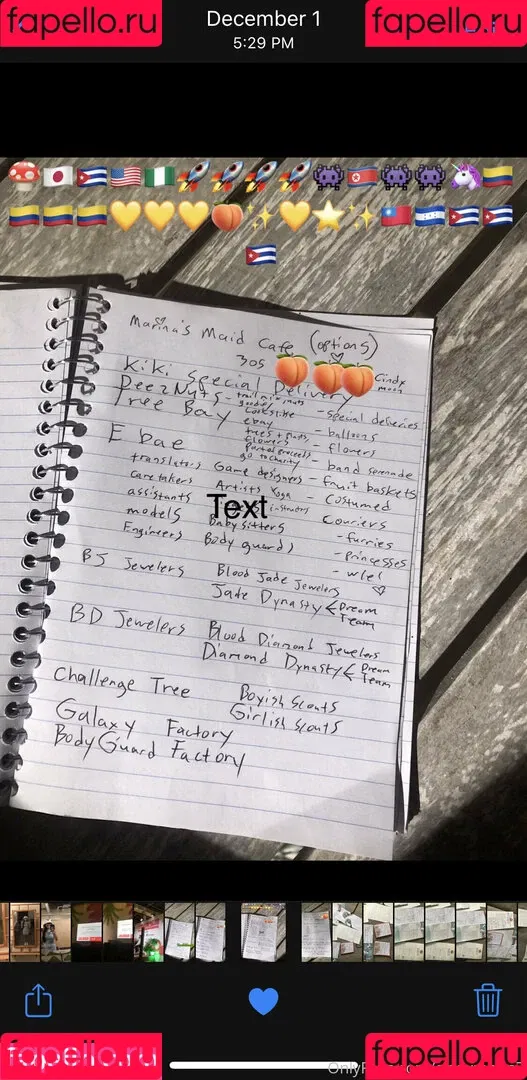 fapello.ru
fapello.ru
December 1
5:29 PM
Marina's Maid Cafe (options)
305
Kiki Special Delivery
Cindy moon
DeezNuts - trail mix nuts
goodies
Tree Bay
ebay
trees + nuts
flowers
go to charity
- special deliveries
- balloons
- flowers
- band serenade
- fruit baskets
- Costumed
Couriers
- furries
- princesses
- wlel
E bae
translators Game designers
caretakers Artists Yoga
assistants instructors
Text
models Baby sitters
Engineers Body guards
BJ Jewelers Blood Jade Jewelers
Jade Dynasty < Dream Team
BD Jewelers Blood Diamond Jewelers
Diamond Dynasty < Dream Team
Challenge Tree Boyish Scouts
Girlish Scouts
Galaxy Factory
BodyGuard Factory
fapello.ru
fapello.ru